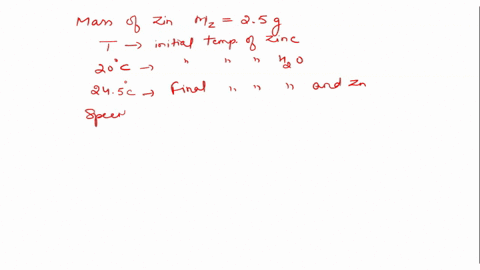 Mass of Zin Mz = 2.5 g
T → initial temp of zinc
20°C → " " " H2O
24.5°C → Final " " " and Zn
Speer